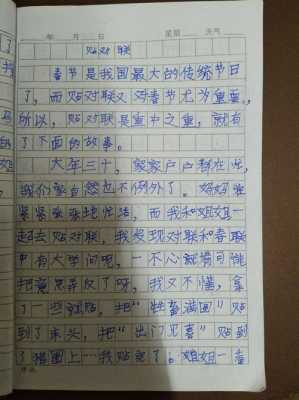 年 月 日 星期 天气
贴对联
春节是我国最大的传统节日
了，而贴对联又对春节尤为重要，
所以，贴对联是重中之重，就有
了下面的故事。
大年三十，家家户户都在忙，
我们家自然也不例外了。妈妈在
紧紧张张地忙活，而我和姐姐一
起去贴对联，我发现对联和春联
中有大学问呢，一不心就情可能
把意思弄反了呀，我又不懂，拿
了一些就贴，把“牲畜满圈”贴
到了床头，把“出门见喜”贴到
了猪圈上……我贴完了。姐姐一看